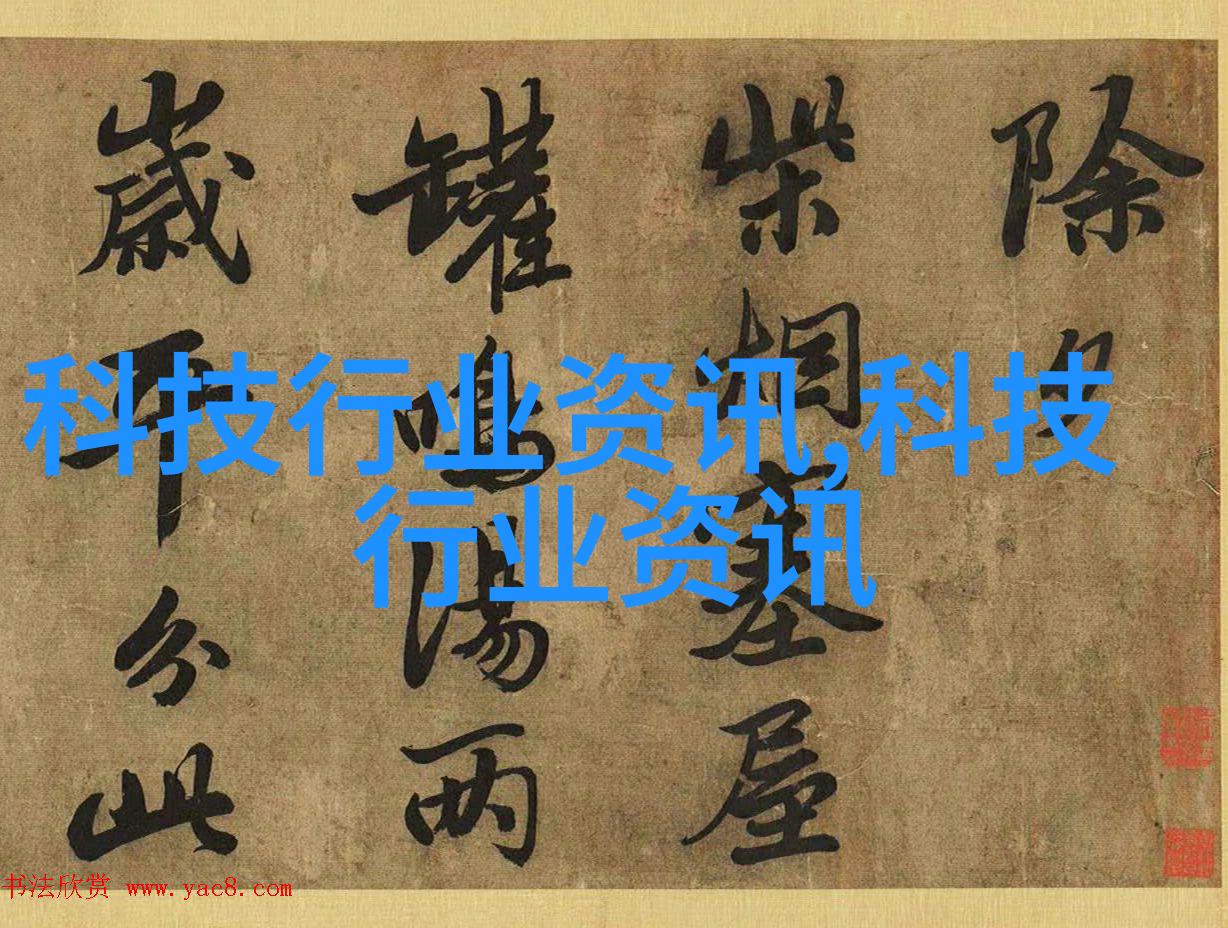 除夕
柴烟塞屋
罐鳴湯两
歲分此
科技行业资讯,科技
行业资讯
书法欣赏 www.yac8.com